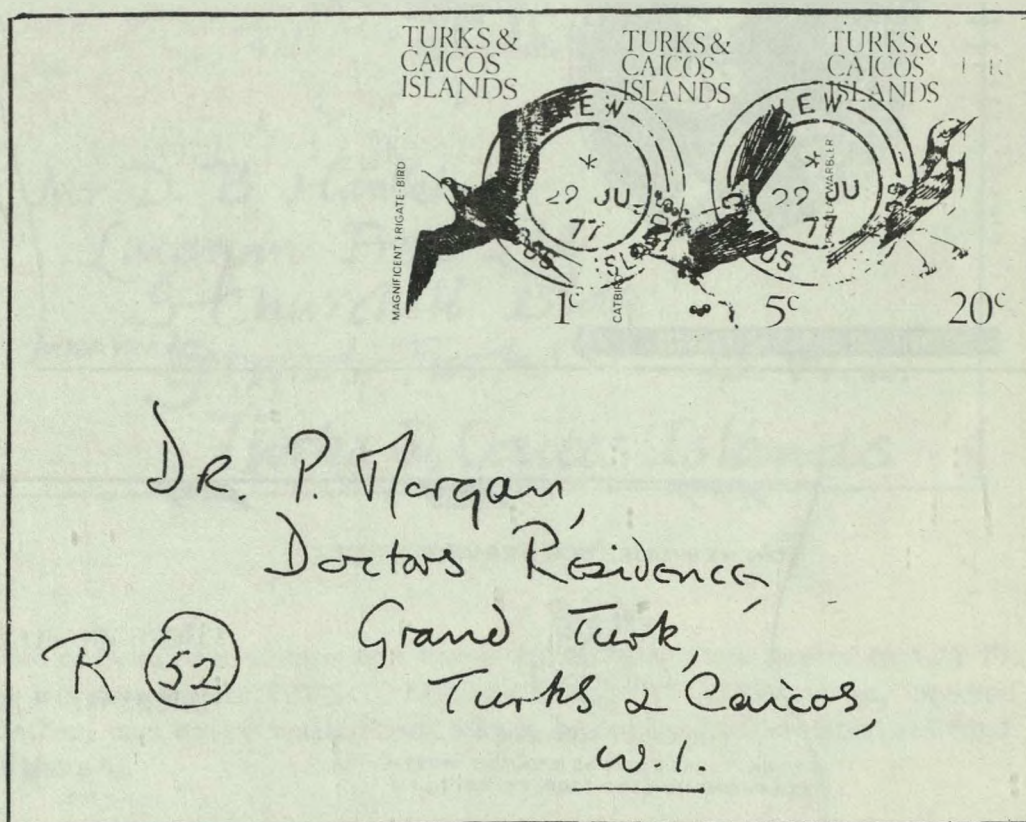 TURKS &
CAICOS
ISLANDS
TURKS &
CAICOS
ISLANDS
TURKS &
CAICOS
ISLANDS
MAGNIFICENT FRIGATE-BIRD
1c
CATBIRD
5c
WARBLER
20c
EW
*
29 JU
77
ISLANDS
EW
*
29 JU
77
Dr. P. Morgan,
Doctors Residence,
Grand Turk,
R 52
Turks & Caicos,
W.I.